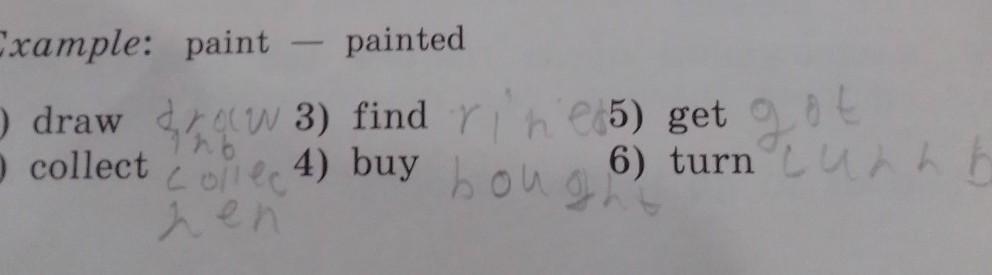 Example: paint — painted
) draw draw 3) find 5) get got
) collect collec 4) buy bought 6) turn
hen